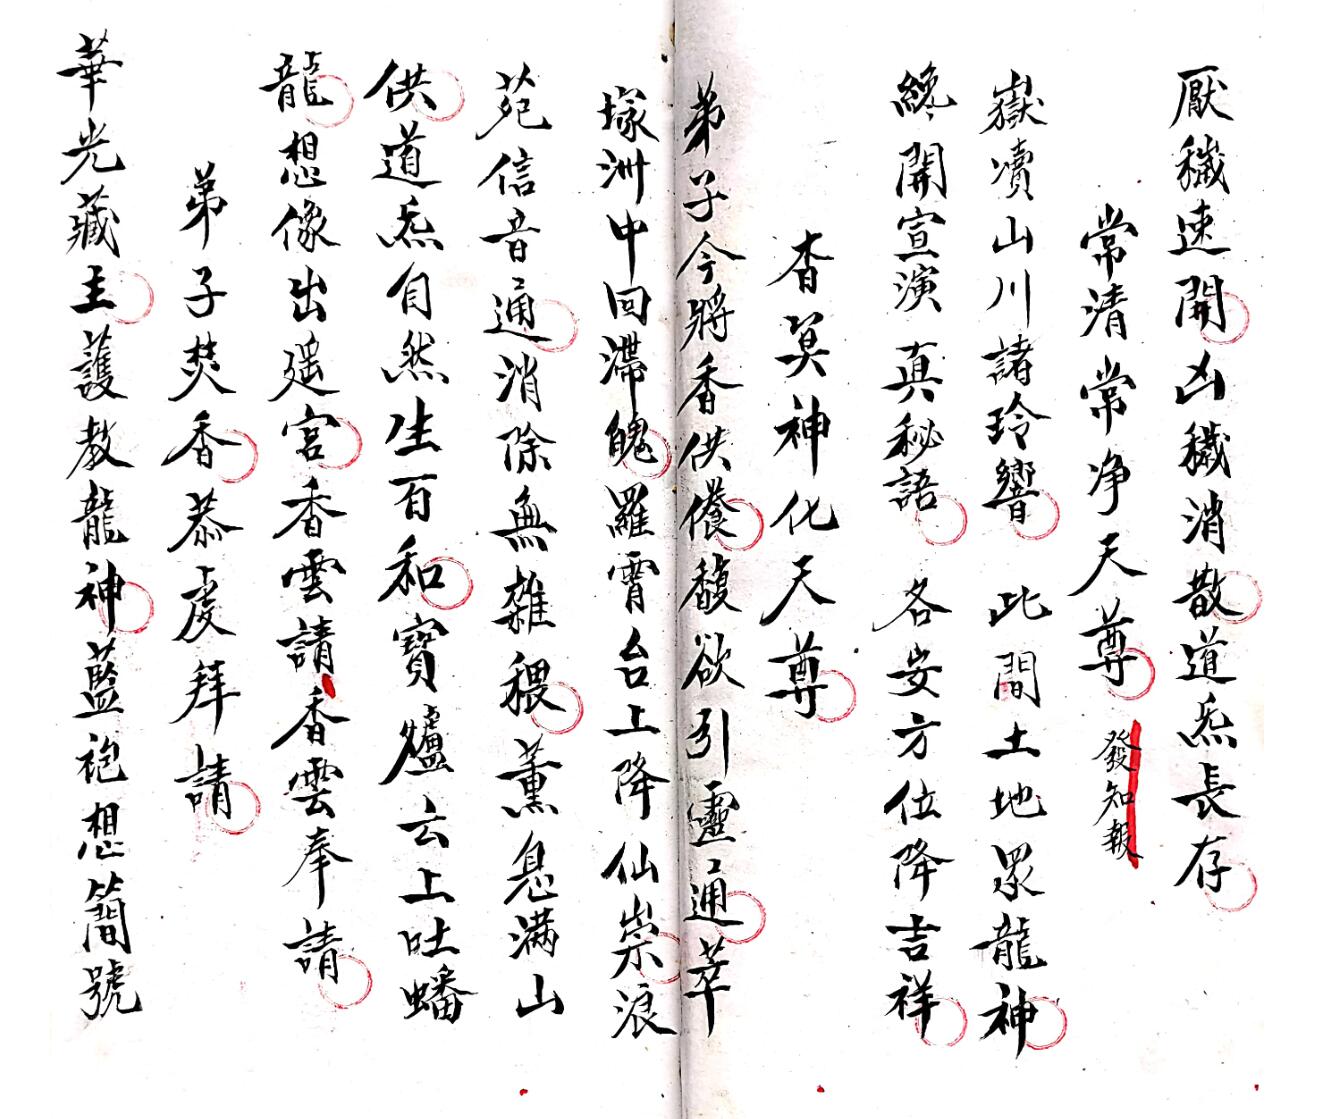 厭穢速開凶穢消散道炁長存
常清常净天尊 發知報
嶽瀆山川諸玲響 此間土地眾龍神
終開宣演真秘語 各安方位降吉祥
杳冥神化天尊
弟子今將香供養馥欲引靈通萃
塚洲中回滯魄羅霄台上降仙崇浪
苑信音通消除無雜穢薰息滿山
供道炁自然生百和寶爐云上吐蟠
龍想像出遥宮香雲請香雲奉請
弟子焚香恭虔拜請
華光藏主護教龍神藍袍想簡號